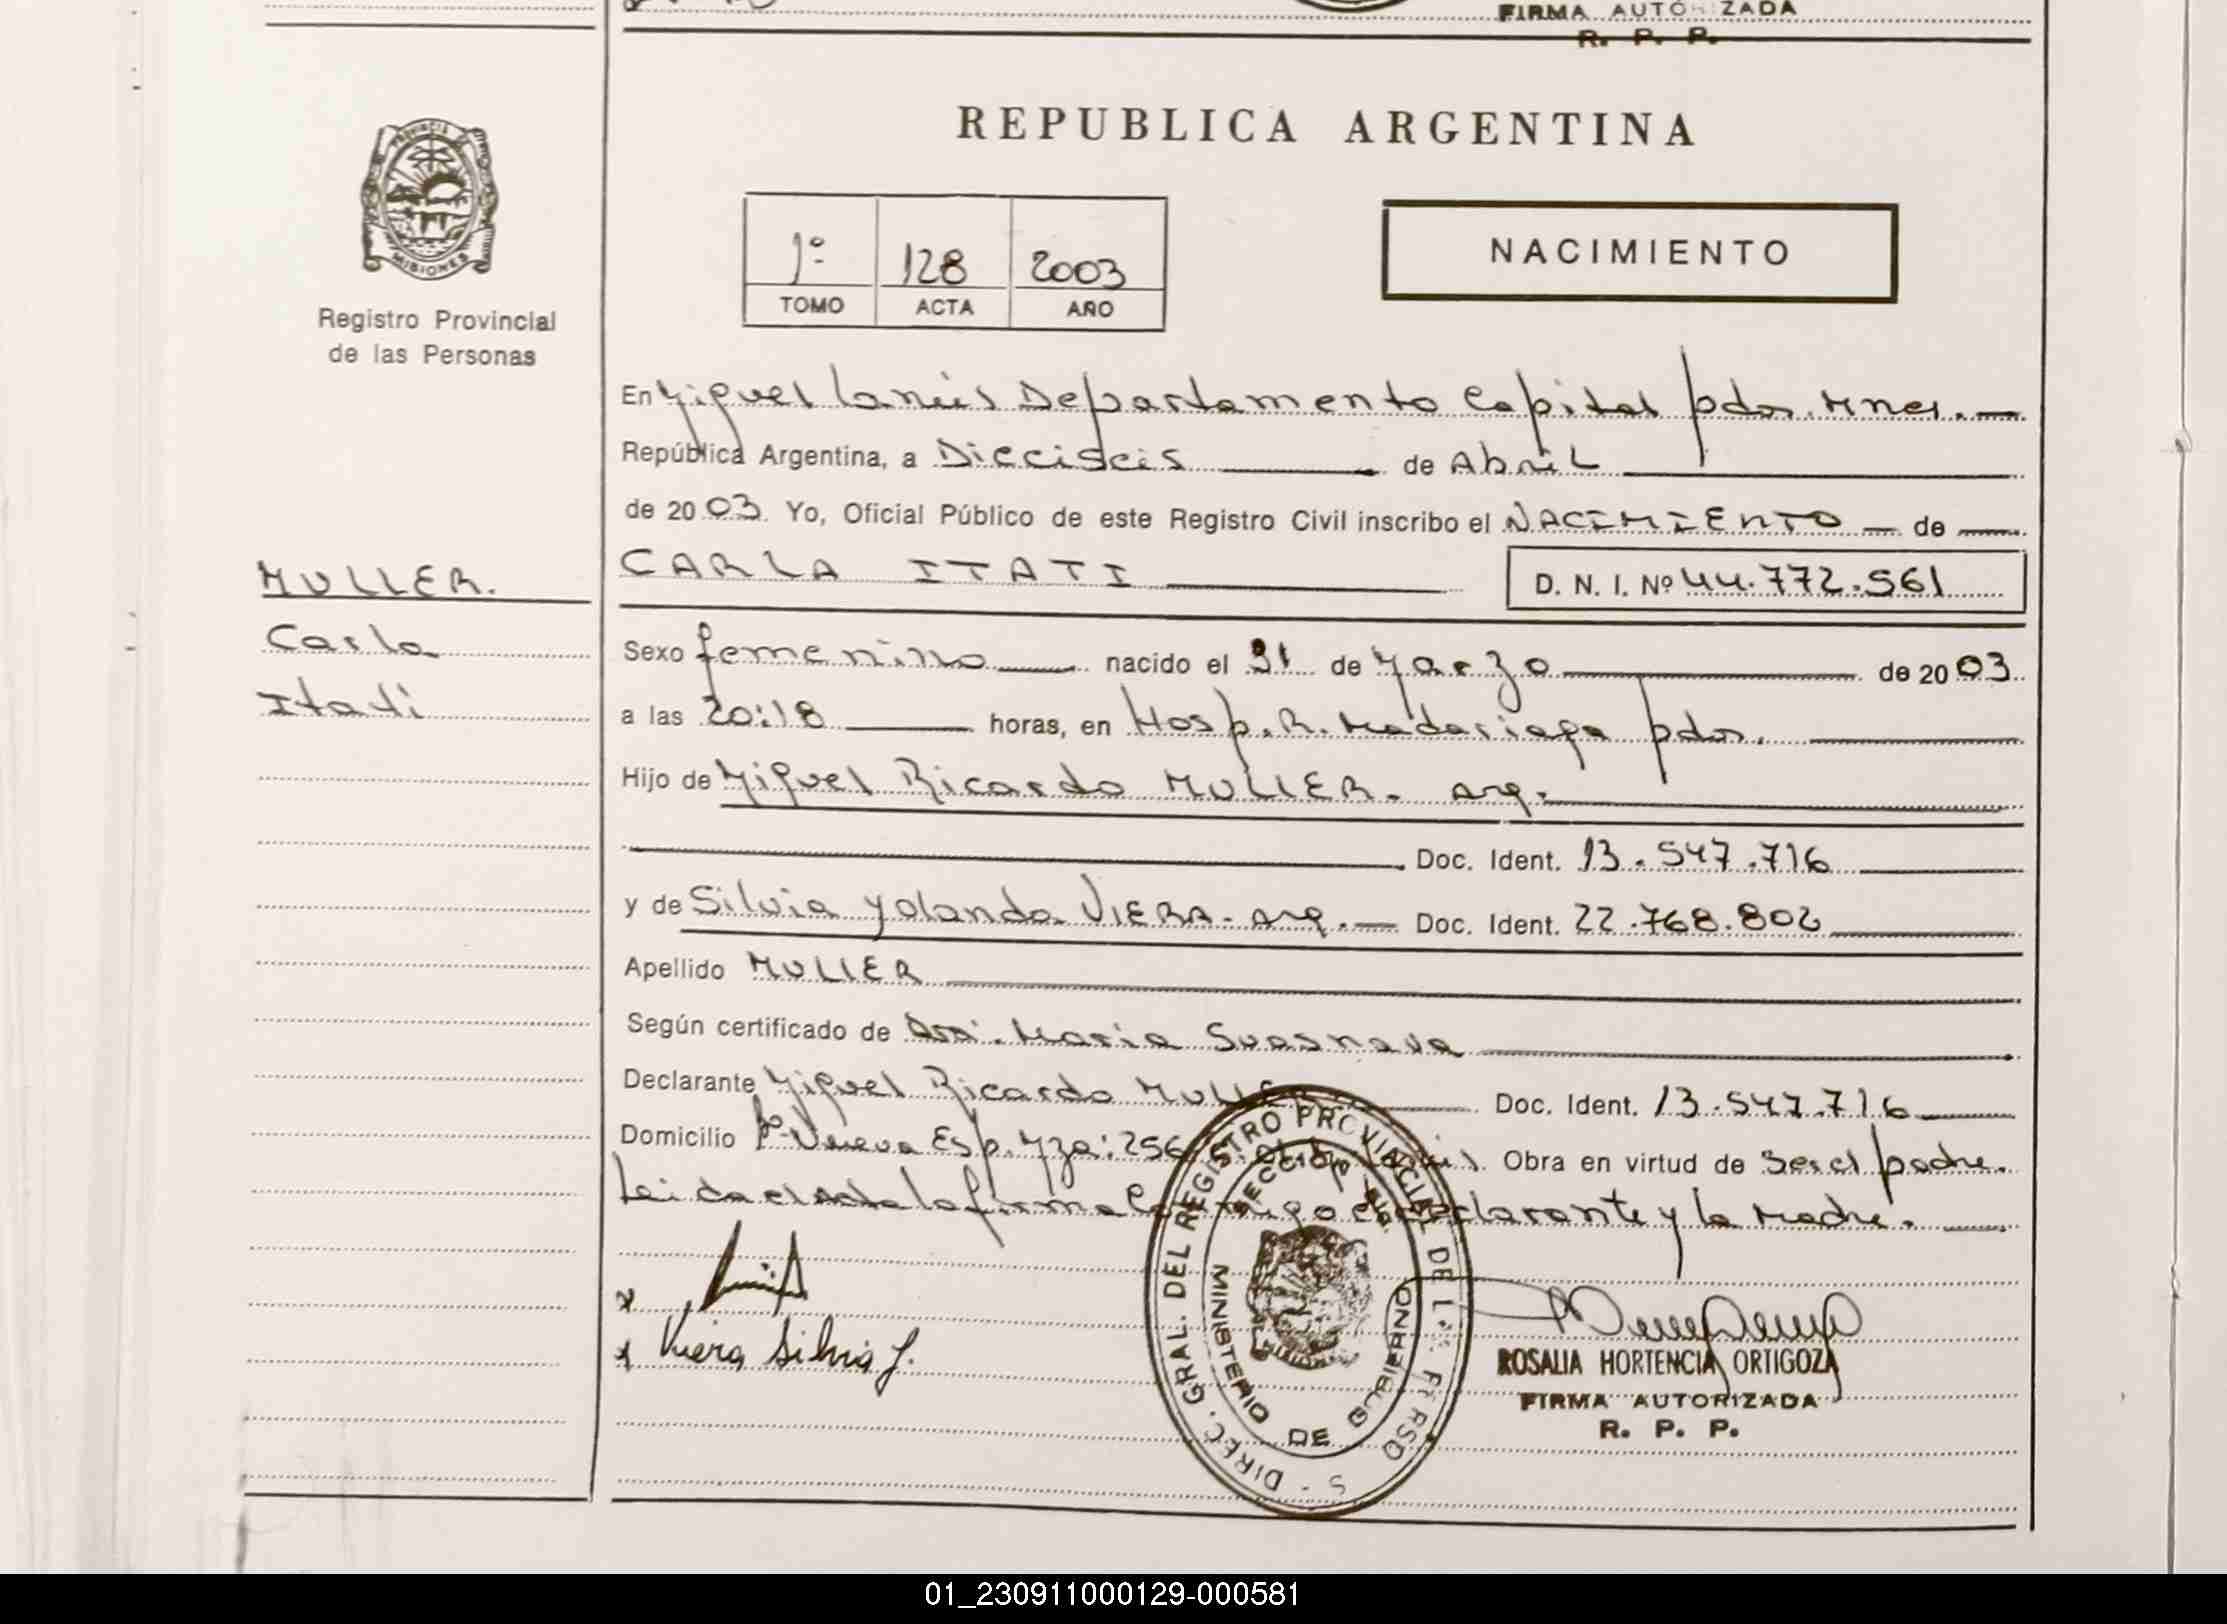 FIRMA AUTORIZADA
R. P. P.
REPUBLICA ARGENTINA
PROVINCIA DE
MISIONES
Registro Provincial
de las Personas
1º 128 2003
TOMO ACTA AÑO
NACIMIENTO
En Miguel Lanús Departamento Capital pdas. Mnes.
República Argentina, a Dieciseis de Abril
de 2003. Yo, Oficial Público de este Registro Civil inscribo el NACIMIENTO de
CARLA ITATI
D. N. I. Nº 44.772.561
MULLER.
Carla
Itati
Sexo femenino nacido el 31 de Marzo de 2003
a las 20:18 horas, en Hosp. R. Madariaga pdas.
Hijo de Miguel Ricardo MULLER. Arg.
Doc. Ident. 13.547.716
y de Silvia Yolanda VIERA - Arg. Doc. Ident. 22.768.802
Apellido MULLER
Según certificado de Dra. Maria Suasnava
Declarante Miguel Ricardo MULLER Doc. Ident. 13.547.716
Domicilio Bº Nueva Esp. Mza: 256 Obra en virtud de Ser el padre.
Leida el Acta la firma Conmigo el Declarante y la Madre.
x
x Viera Silvia Y.
DIREC. GRAL. DEL REGISTRO PROVINCIAL DE LAS PERSONAS
MINISTERIO DE GOBIERNO
ROSALIA HORTENCIA ORTIGOZA
FIRMA AUTORIZADA
R. P. P.
01_230911000129-000581